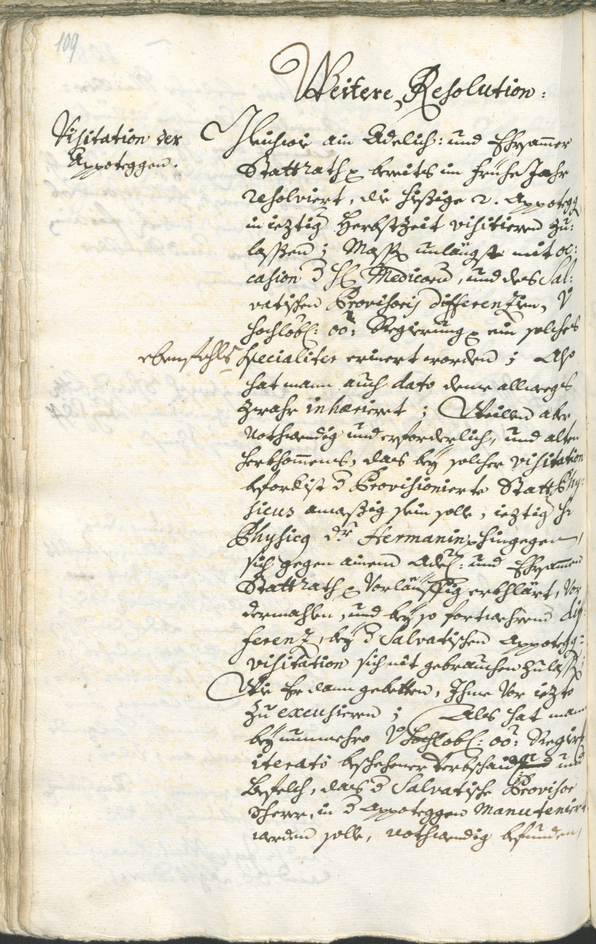 109
Weitere Resolution:
Visitation der
Appoteggen.
ain Adelich: und Ehrsammer
Stattrath bereits im Frühe Jahr
resolviert, die hießige 2. Appotegg
in ietztig Herbstzeit visitieren zu-
lassen; unlängst mit oc-
casion d H. Medicorum, und des Sal-
vatischen Provisoris differentien, V
Hochlöbl: oö: Regierung ein solches
ebenfahls specialiter erinert worden; Also
hat mann auch dato deme allwegs
inhæriert; Weillen aber
nothwendig und erforderlich, und alten
herkhommens, das bey solcher visitation
d Provisionierte Statt Phy-
sicus sein solle, ietztig H.
Physicus Dr. Hermanin hingegen,
sich gegen ainem Adel: und Ehrsammen
Stattrath Vorläuffig erkhlärt, Vor
dermahlen, und bey so dif-
ferenz, bey d Salvatischen Appotegg-
visitation sich nit gebrauchen zulassen
Wie Er dann gebetten, Ihme Vor ietzto
zu excusieren; Als hat man
bey nunmehro V Hochlöbl: oö: Regier
iterato beschehener und
Befelch, das d Salvatische Provisor
in d Appoteggen Manuteniert
werden solle, nothwendig befunden,